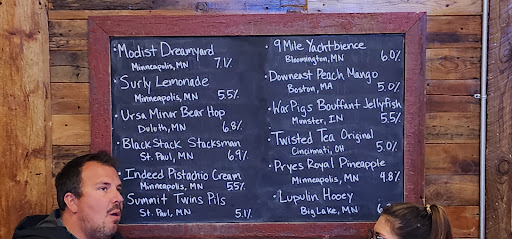 • Modist Dreamyard
Minneapolis, MN 7.1%
• Surly Lemonade
Minneapolis, MN 5.5%
• Ursa Minor Bear Hop
Duluth, MN 6.8%
• BlackStack Stacksman
St. Paul, MN 6.9%
• Indeed Pistachio Cream
Minneapolis, MN 5.5%
• Summit Twins Pils
St. Paul, MN 5.1%
• 9 Mile Yachtbience
Bloomington, MN 6.0%
• Downeast Peach Mango
Boston, MA 5.0%
• War Pigs Bouffant Jellyfish
Munster, IN 5.5%
• Twisted Tea Original
Cincinnati, OH 5.0%
• Pryes Royal Pineapple
Minneapolis, MN 4.8%
• Lupulin Hooey
Big Lake, MN